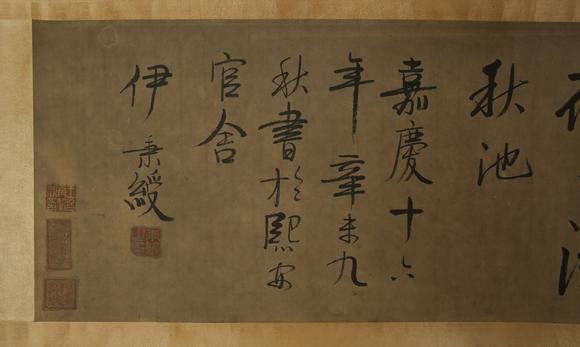 秋池
嘉慶十六
年辛未九
秋書於熙安
官舍
伊秉綬